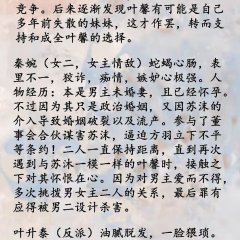 竞争。后来逐渐发现叶馨有可能是自己
多年前失散的妹妹，这才作罢，转而支
持和成全叶馨的选择。
秦婉（女二，女主情敌）蛇蝎心肠，表
里不一，狡诈，痴情，嫉妒心极强。人
物经历：本是男主未婚妻，且已经怀孕。
不过因为其只是政治婚姻，因又苏沫的
介入导致婚姻破裂以及流产。参与了董
事会合伙谋害苏沫，逼迫方羽立下不平
等条约！二人一直保持距离，直到再次
遇到与苏沫一模一样的叶馨时，接触之
下对其怀恨在心。因为对男主爱而不得，
多次挑拨男女主二人的关系，最后罪有
应得被男二设计杀害。
叶升泰（反派）油腻脱发，一脸猥琐。